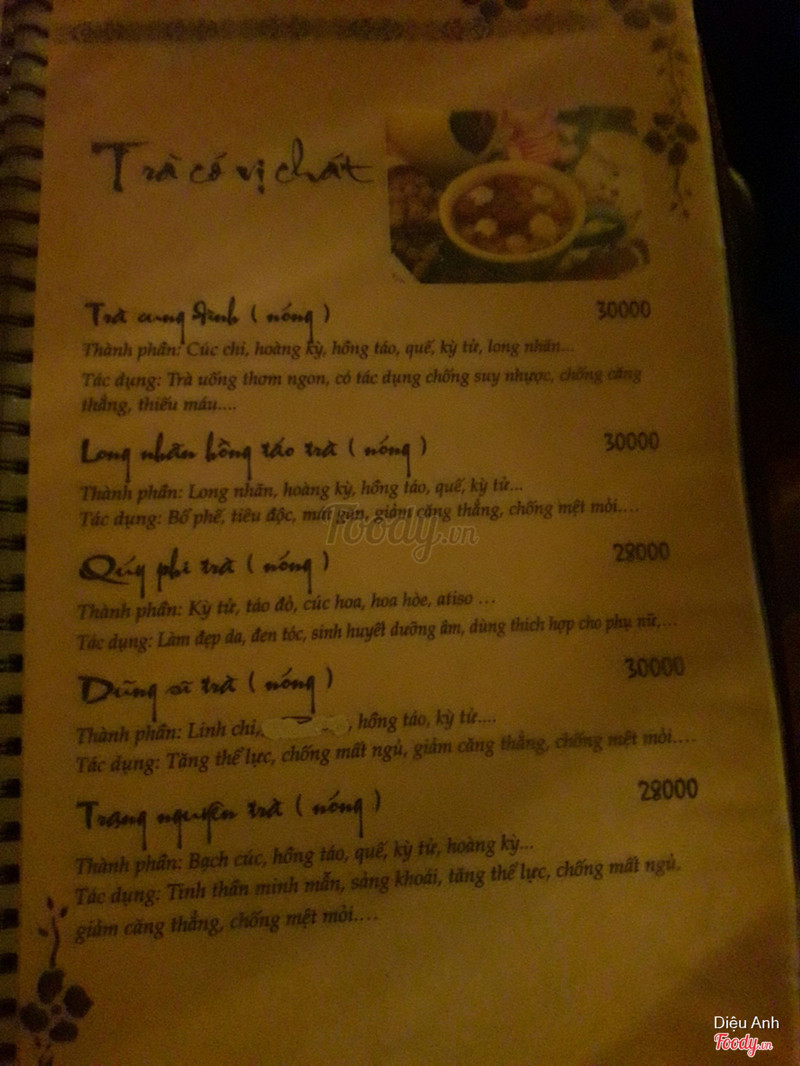 Trà có vị chát
Trà cung đình ( nóng ) 30000
Thành phần: Cúc chi, hoàng kỳ, hồng táo, quế, kỳ tử, long nhãn...
Tác dụng: Trà uống thơm ngon, có tác dụng chống suy nhược, chống căng
thẳng, thiếu máu....
Long nhãn hồng táo trà ( nóng ) 30000
Thành phần: Long nhãn, hoàng kỳ, hồng táo, quế, kỳ tử...
Tác dụng: Bổ phế, tiêu độc, mát gan, giảm căng thẳng, chống mệt mỏi....
Foody.vn
Qúy phi trà ( nóng ) 28000
Thành phần: Kỳ tử, táo đỏ, cúc hoa, hoa hòe, atiso ...
Tác dụng: Làm đẹp da, đen tóc, sinh huyết dưỡng âm, dùng thích hợp cho phụ nữ....
Dũng sĩ trà ( nóng ) 30000
Thành phần: Linh chi, , hồng táo, kỳ tử....
Tác dụng: Tăng thể lực, chống mất ngủ, giảm căng thẳng, chống mệt mỏi....
Trạng nguyên trà ( nóng ) 28000
Thành phần: Bạch cúc, hồng táo, quế, kỳ tử, hoàng kỳ...
Tác dụng: Tinh thần minh mẫn, sảng khoái, tăng thể lực, chống mất ngủ,
giảm căng thẳng, chống mệt mỏi....
Diệu Anh
Foody.vn